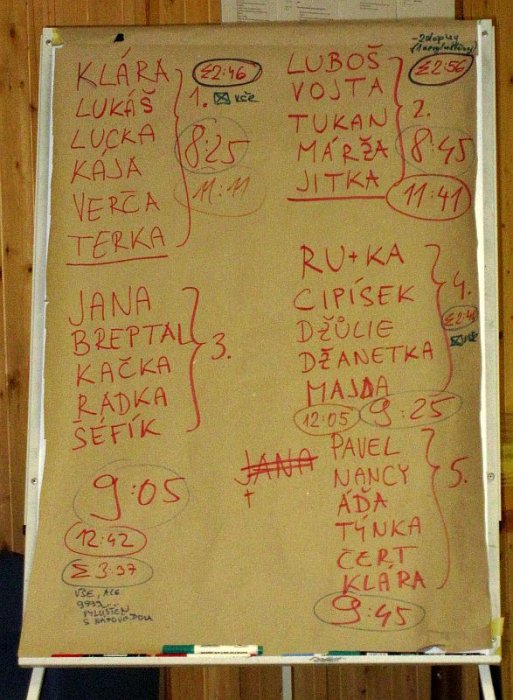 KLÁRA
LUKÁŠ
LUCKA
KÁJA
VERČA
TERKA
Σ2:46
1. VŠE
8:25
11:11
LUBOŠ
VOJTA
TUKAN
MÁRŽA
JITKA
Σ2:56
2.
8:45
11:41
JANA
BREPTAL
KAČKA
RADKA
ŠÉFÍK
3.
9:05
12:42
Σ 3:37
VŠE, ALE
S NÁPOVĚDOU
RU+KA
CIPÍSEK
DŽŮLIE
DŽANETKA
MAJDA
4.
VŠE
12:05
9:25
JANA
+
PAVEL
NANCY
ÁĎA
TÝNKA
ČERT
KLÁRA
5.
9:45